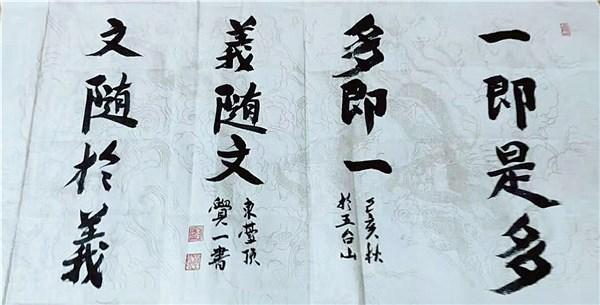 一即是多
多即一
己亥秋
於五台山
義随文
東臺頂
覺一書
文随於義